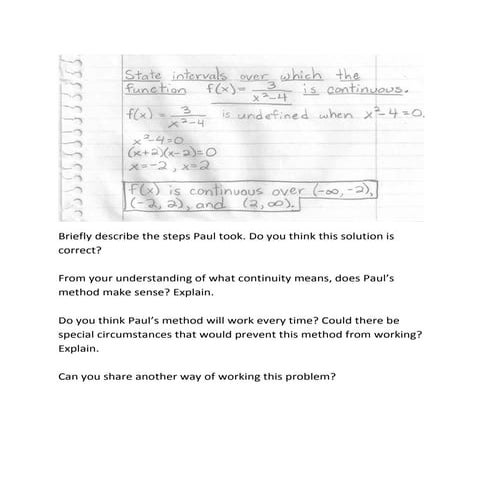 State intervals over which the
function f(x)= 3/(x²-4) is continuous.
f(x) = 3/(x²-4) is undefined when x²-4=0.
x²-4=0
(x+2)(x-2)=0
x=-2, x=2
f(x) is continuous over (-∞,-2),
(-2, 2), and (2,∞).
Briefly describe the steps Paul took. Do you think this solution is
correct?
From your understanding of what continuity means, does Paul's
method make sense? Explain.
Do you think Paul's method will work every time? Could there be
special circumstances that would prevent this method from working?
Explain.
Can you share another way of working this problem?